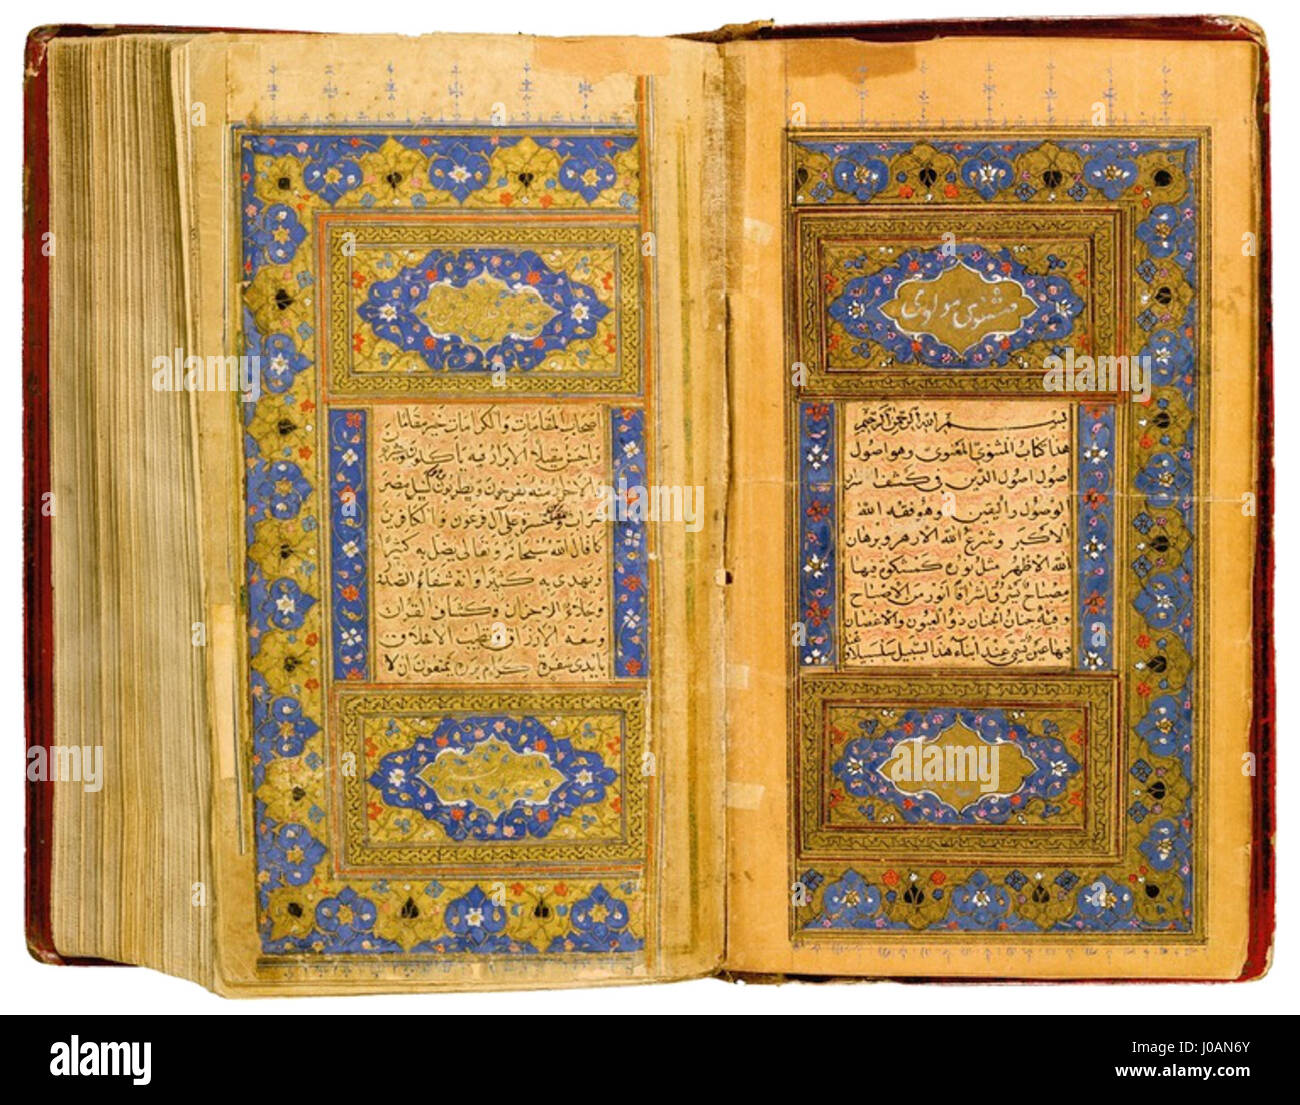 مثنوی مولوی
بسم الله الرحمن الرحیم
هذا کتاب المثنوی المعنوی وهو اصول
اصول اصول الدین و کشف اسرار
الوصول والیقین وهو فقه الله
الاکبر و شرع الله الازهر و برهان
الله الاظهر مثل نوره کمشکوة فیها
مصباح یشرق اشراقا انور من الاصباح
وفیه جنان الجنان ذو العیون والاغصان
فیها عین تسمی عند ابناء هذا السبیل سلسبیلا و
اصحاب المقامات والکرامات خیر مقاما
واحسن مقیلا الابرار فیه یأکلون ویشربون
والاحرار منه یفرحون ویطربون کنیل مصر
شراب وحسرة علی آل فرعون والکافرین
کما قال الله سبحانه وتعالی یضل به کثیرا
ویهدی به کثیرا وانه شفاء الصدور
وجلاء الاحزان وکشاف القرآن
وسعة الارزاق وتطییب الاخلاق
بایدی سفرة کرام بررة یمنعون ان لا
alamy stock photo
J0AN6Y
www.alamy.com